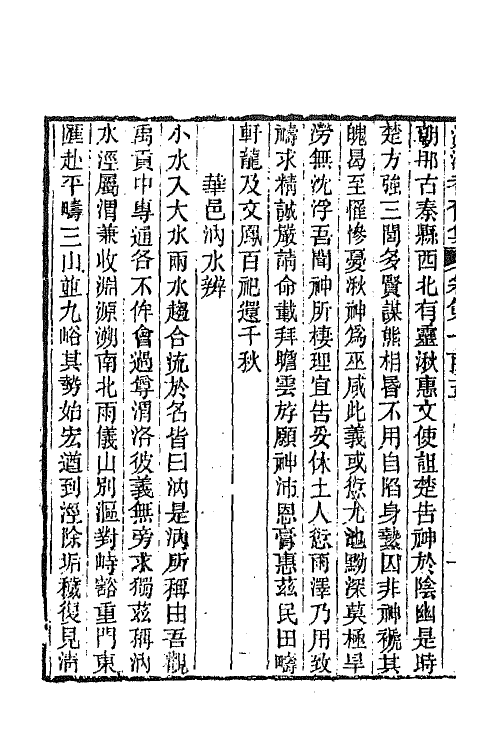 朝那古秦縣西北有靈湫惠文使詛楚告神於陰幽是時
楚方強三閭多賢謀熊相昏不用自陷身縶囚非神褫其
魄曷至罹慘憂湫神為巫咸此義或愆尤池黝深莫極旱
澇無沈浮吾聞神所棲理宜告妥休土人愆雨澤乃用致
禱求精誠嚴請命載拜瞻雲斿願神沛恩膏惠茲民田疇
軒龍及文鳳百祀還千秋
華邑汭水辨
小水入大水兩水趨合流於名皆曰汭是汭所稱由吾觀
禹貢中專通各不侔會過舉渭洛彼義無旁求獨茲稱汭
水涇屬渭兼收淵源溯南北兩儀山別漚對峙豁重門東
匯赴平疇三山並九峪其勢始宏遒到涇除垢穢復見清